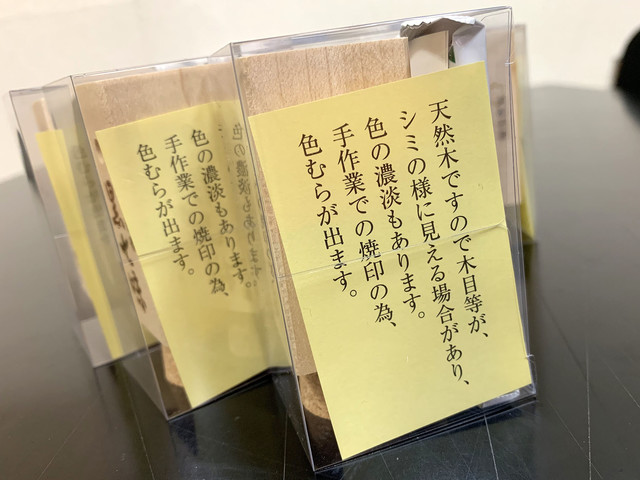 天然木ですので木目等が、
シミの様に見える場合があり、
色の濃淡もあります。
手作業での焼印の為、
色むらが出ます。
色の濃淡もあります。
手作業での焼印の為、
色むらが出ます。